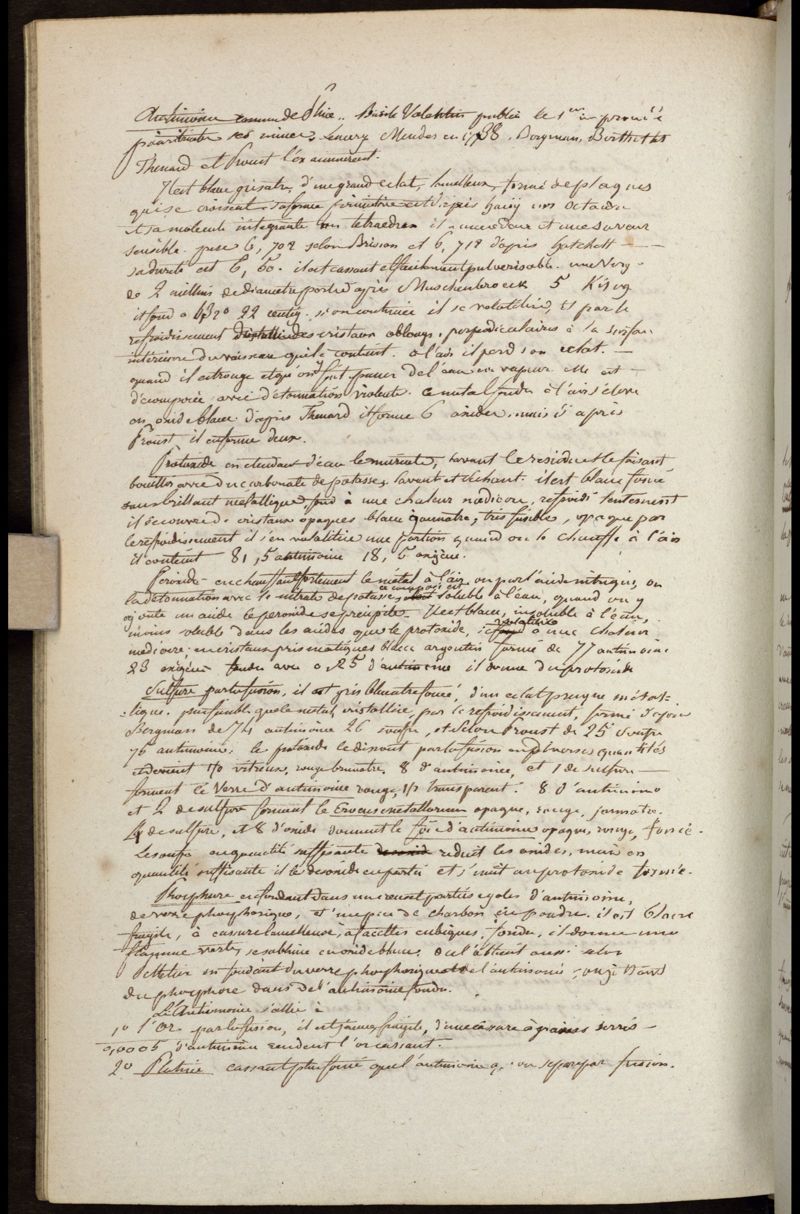 Antimoine connu de Pline.. Basile Valentin publia le 1er un procédé
pour extraire ses mines, Lemery Mender en 1738. Bergman, Berthollet
Thenard et Proust l'examinerent.
Il est blanc grisatre, d'un grand eclat, lamelleux, formé de plaques
qui se croisent. sa forme primitive est d'après Haüy un octaedre
et sa molecule integrante un tetraedre il a une odeur et une saveur
sensible. pese 6,702 selon Brisson et 6,712 d'après Hatchett
sa dureté est 6,50. il est cassant et facilement pulverisable. une verge
de 2 millim de diametre porte d'après Muschenbroeck 5 Kilog
il fond a 432° 22 centig. si on continue il se volatilise, et par le
refroidissement des cristaux oblongs, perpendiculaires à la surface
interieure du vaisseau qui le contient. a l'air il perd son eclat.
quand il est rouge et qu'on fait passer de l'eau en vapeur elle est
decomposée avec detonnation violente. ce metal fondu à l'air s'eleve
en oxide blanc. d'après Thenard il forme 6 oxides, mais d'après
Proust il en forme deux.
Protoxide en etendant d'eau le muriate, lavant le residu et le faisant
bouillir avec du carbonate de potasse, lavant et sechant. il est blanc foncé
sans brillant metallique, fond à une chaleur mediocre, refroidi lentement
il se couvre de cristaux opaques blanc jaunatre, très fusible, opaque par
le refroidissement il s'en volatilise une portion quand on le chauffe à l'air
il contient 81,5 antimoine 18,5 oxigene.
Peroxide en chauffant fortement le metal à l'air ou par l'acide nitrique, ou
la detonnation avec le nitrate de potasse, composé est soluble à l'eau, quand on y
ajoute un acide le peroxide se precipite. Il est blanc, insoluble à l'eau,
moins soluble dans les acides que le protoxide, se volatilise à une chaleur
mediocre. en cristaux prismatiques blanc argentin formé de 77 antimoine
23 oxigene fondu avec 0,25 d'antimoine il donne du protoxide
Sulfure par la fusion, il est gris bleuatre foncé, d'un eclat presque metal-
-lique. plus fusible que le metal, cristallise par le refroidissement, formé d'après
Bergman de 74 antimoine 26 soufre, et selon Proust de 25 soufre
75 antimoine. le protoxide le dissout par la fusion en diverses quantités
et devient 1/2 vitreux, rouge brunatre. 8 d'antimoine, et 1 de sulfure
forment le Verre d'antimoine rouge, 1/2 transparent. 8 d'antimoine
et 2 de sulfure forment le Crocus metallorum opaque, rouge, jaunatre.
4 de sulfure, et 8 d'oxide donnent le foie d'antimoine opaque, rouge, foncé.
Le soufre en quantité suffisante reduit les oxides, mais en
quantité suffisante il le desoxide en partie et s'unit au protoxide formé.
Phosphure en fondant dans un creuset parties egales d'antimoine,
de verre phosphorique, et un peu de charbon en poudre. il est blanc
fragile, à cassure lamelleuse, à facettes cubiques, fondu, il donne une
flamme verte, se sublime en oxide blanc. on l'obtient aussi selon
Pelletier en fondant du verre phosphorique et de l'antimoine
du phosphore dans de l'antimoine fondu.
L'Antimoine s'allie à
1° l'Or par la fusion, il est jaune, fragile, d'une cassure à grains serrés
0,0005 d'antimoine rendent l'or cassant.
2° Platine cassant plus foncé que l'antimoine q. on separe par fusion.